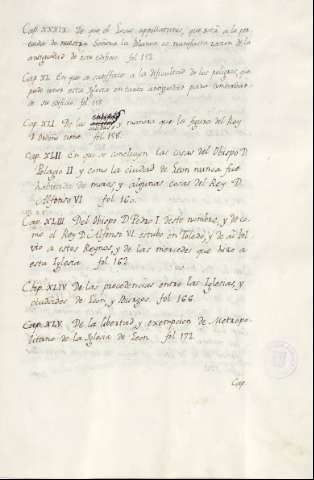 Cap. XXXIX. De que el Leon apostlaturas, que está a la por-
tada de nuestra Señora la Blanca es manifiesta razon de la
antiguedad de este edificio. fol 152.
Cap. XL. En que se satisface a la dificultad de los peligros, que
pudo correr esta Iglesia en tanta antiguedad para conservar-
se su edificio. fol. 155.
Cap. XLI. De las y manera que la figura del Rey
D Ordoño tiene. fol. 158.
Cap. XLII En que se concluyen las cosas del Obispo D.
Pelayo II y como la ciudad de Leon nunca fue
habitada de moros, y algunas cosas del Rey D.
Alfonso VI. fol. 160.
Cap. XLIII. Del Obispo D. Pedro I. deste nombre, y de co-
mo el Rey D. Alfonso VI. estubo en Toledo, y de ai bol-
vio a estos Reynos, y de las mercedes que hizo a
esta Iglesia. fol. 162.
Cap. XLIV. De las precedencias entre las Iglesias, y
ciudades de Leon, y Burgos. fol 166.
Cap. XLV. De la libertad, y exempcion de Metropo-
litano de la Iglesia de Leon. fol 172.
Cap.